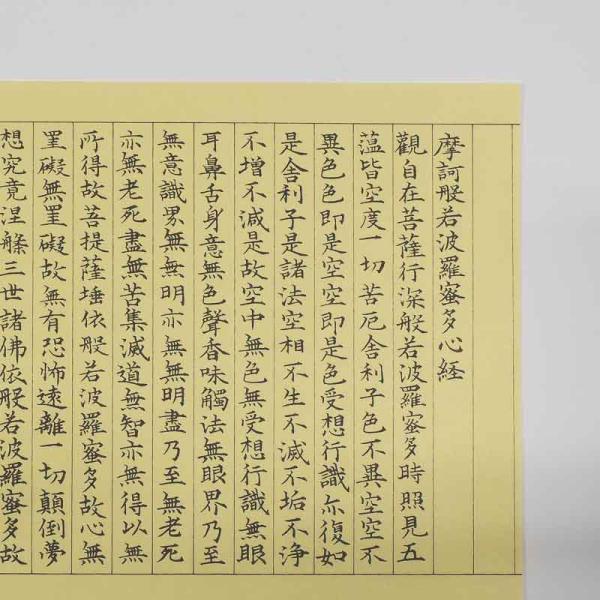 摩訶般若波羅蜜多心経
觀自在菩薩行深般若波羅蜜多時照見五
蘊皆空度一切苦厄舎利子色不異空空不
異色色即是空空即是色受想行識亦復如
是舎利子是諸法空相不生不滅不垢不浄
不增不減是故空中無色無受想行識無眼
耳鼻舌身意無色聲香味觸法無眼界乃至
無意識界無無明亦無無明盡乃至無老死
亦無老死盡無苦集滅道無智亦無得以無
所得故菩提薩埵依般若波羅蜜多故心無
罣礙無罣礙故無有恐怖遠離一切顛倒夢
想究竟涅槃三世諸佛依般若波羅蜜多故